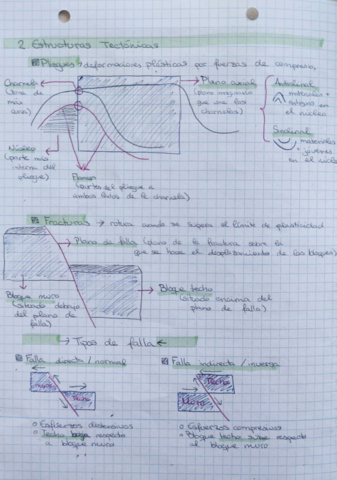 2. Estructuras Tectónicas
Pliegues → deformaciones plásticas por fuerzas de compresión
Charnela
(zona de
más
curva)
Plano axial
(plano imaginario
que une las
charnelas)
Anticlinal
materiales +
antiguos en
el núcleo
Sinclinal
materiales
+ jóvenes
en el núcleo
Núcleo
(parte más
interna del
pliegue)
Flancos
(partes del pliegue a
ambos lados de la charnela)
Fracturas → rotura cuando se supera el límite de plasticidad
Plano de falla (plano de la fractura sobre la
que se hace el desplazamiento de los bloques)
Bloque muro
(situado debajo
del plano de
falla)
Bloque techo
(situado encima del
plano de falla)
→ Tipos de falla ←
Falla directa / normal
Falla indirecta / inversa
muro
techo
Techo
Muro
Esfuerzos distensivos
Techo baja respecto
a bloque muro
Esfuerzos compresivos
Bloque techo sube respecto
al bloque muro